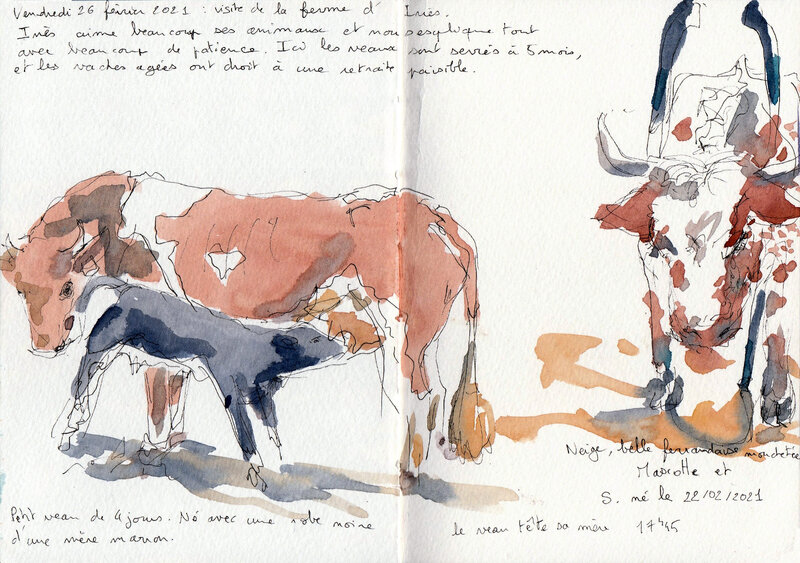 Vendredi 26 février 2021 : visite de la ferme d' Inès.
Inès aime beaucoup ses animaux et nous explique tout
avec beaucoup de patience. Ici les veaux sont sevrés à 5 mois,
et les vaches agées ont droit à une retraite paisible.
Neige, belle ferrandaise mouchetée
Mascotte et
S. né le 22/02/2021
Petit veau de 4 jours. Né avec une robe noire
d'une mère marron.
le veau tête sa mère 17h45